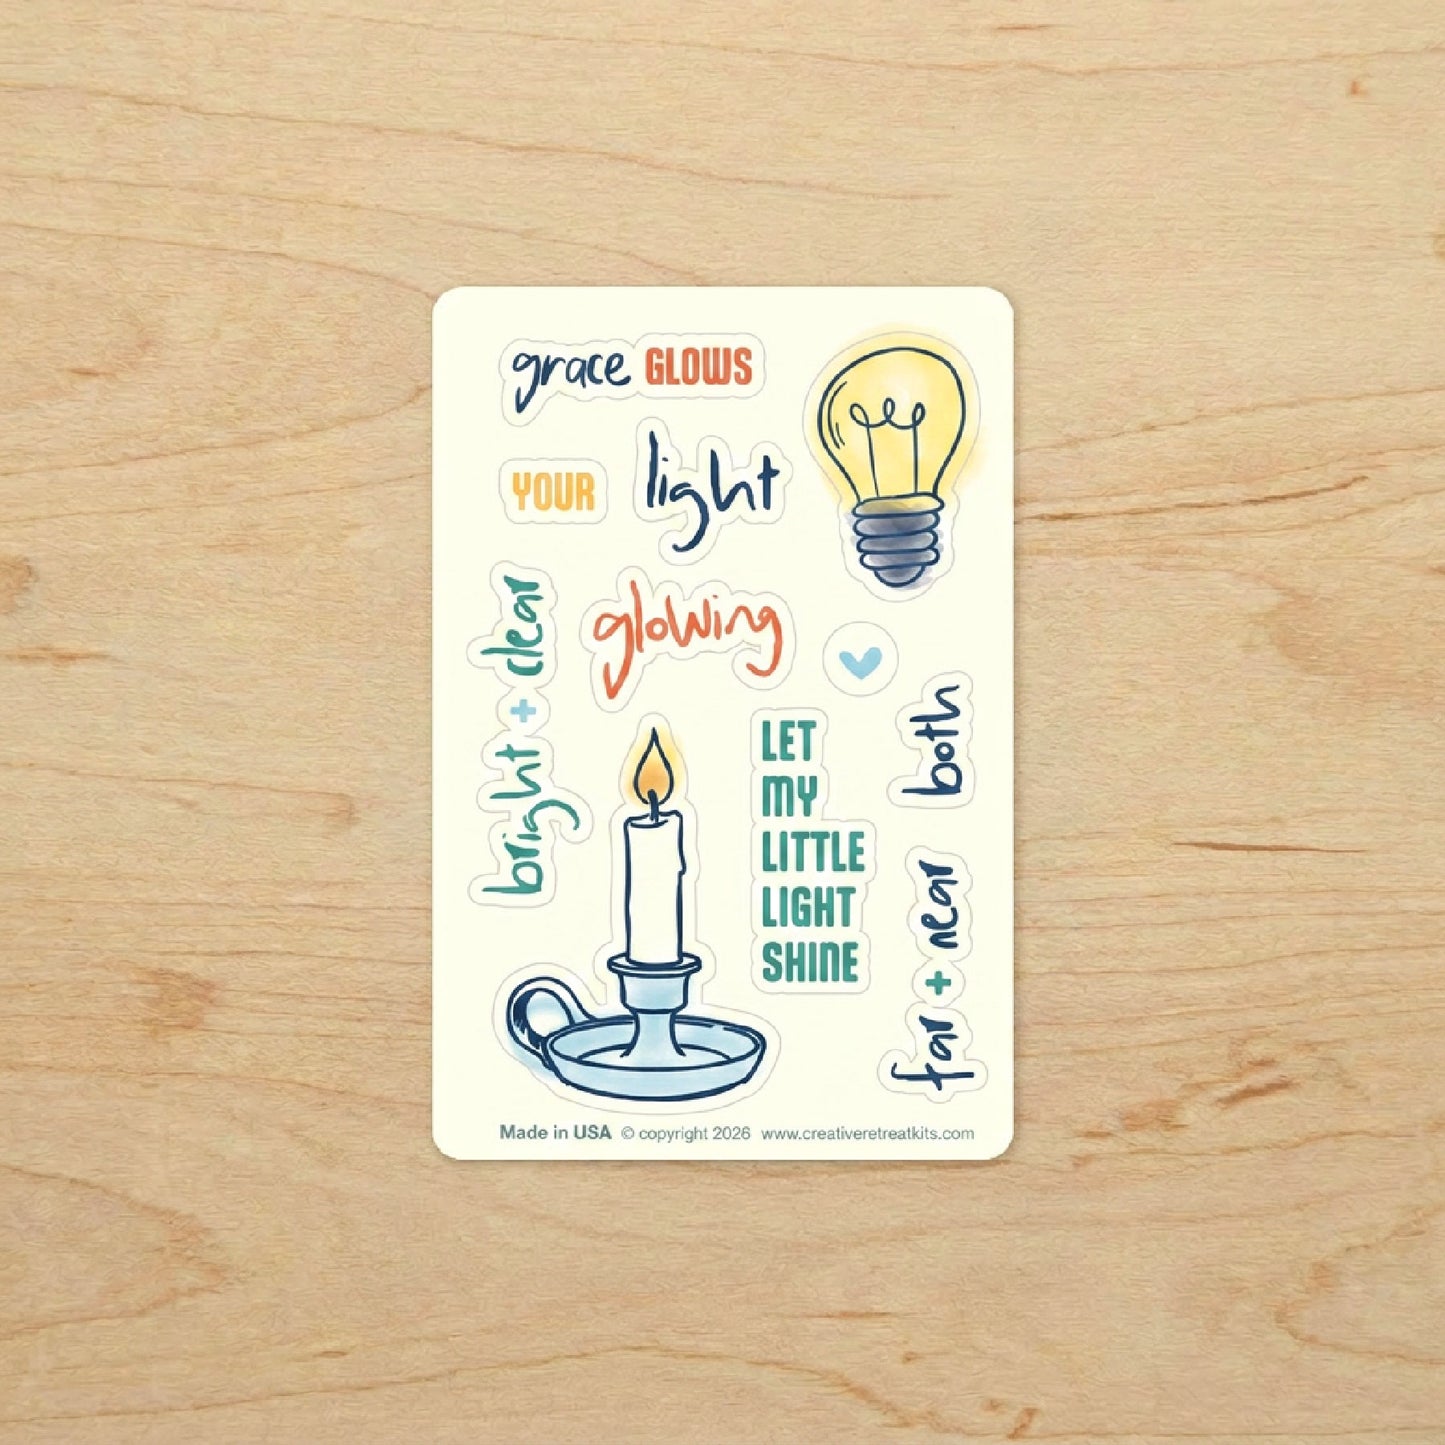 grace GLOWS
YOUR
light
bright + clear
glowing
LET
MY
LITTLE
LIGHT
SHINE
both
far + near
Made in USA © copyright 2026 www.creativeretreatkits.com